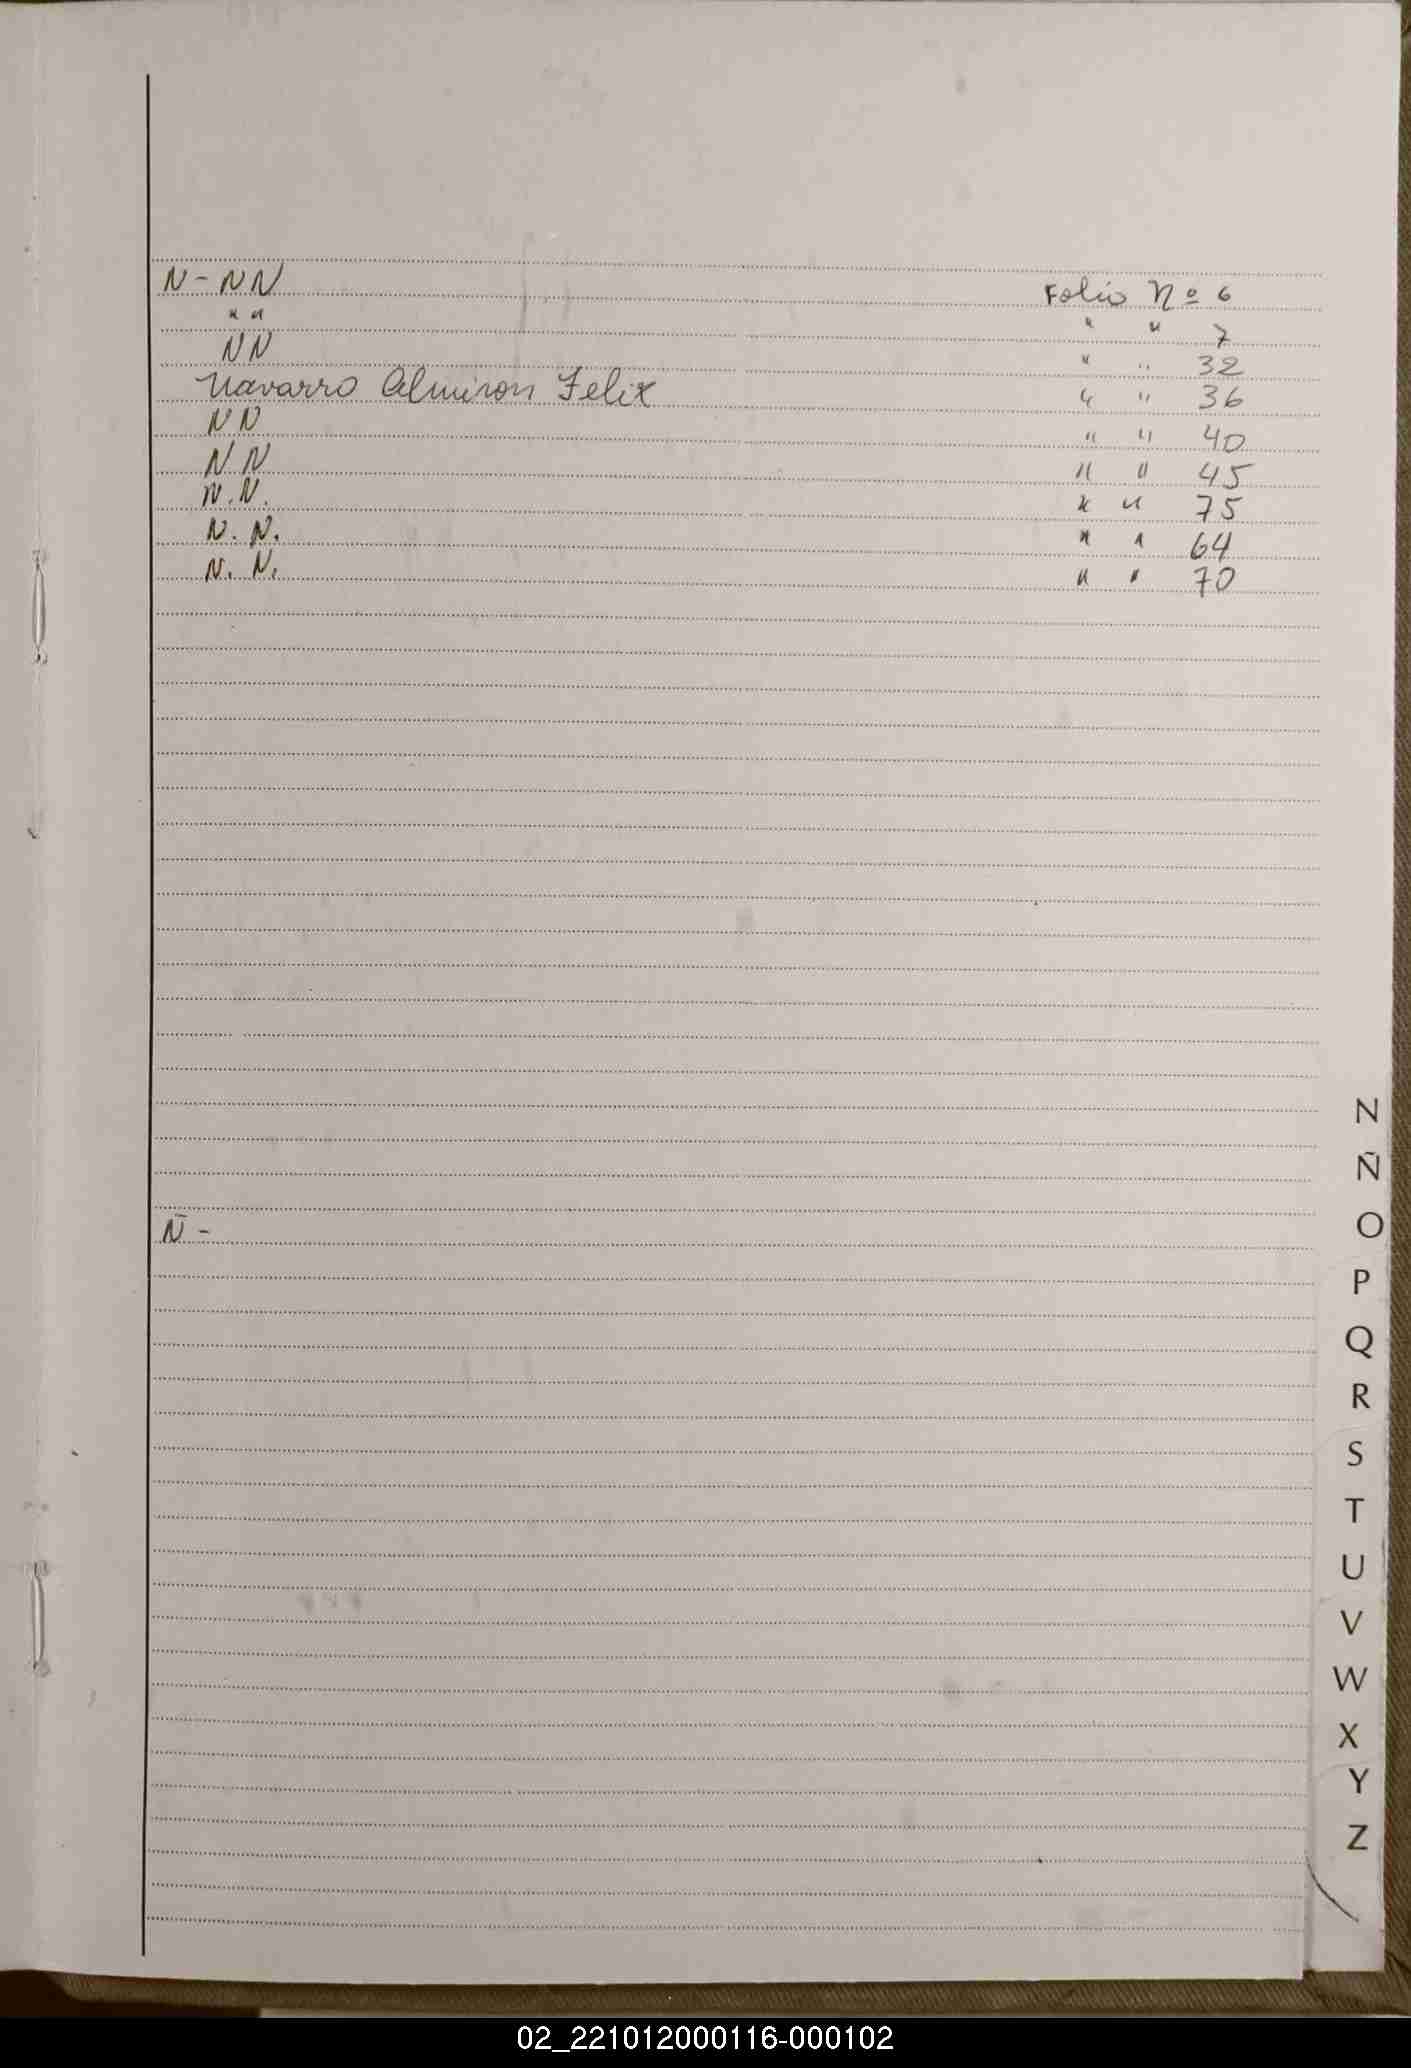 N - NN Folio Nº 6
" " " " 7
NN " " 32
Navarro Almiron Felix " " 36
NN " " 40
NN " " 45
N.N. " " 75
N. N. " " 64
N. N. " " 70
Ñ -
N
Ñ
O
P
Q
R
S
T
U
V
W
X
Y
Z
02_221012000116-000102